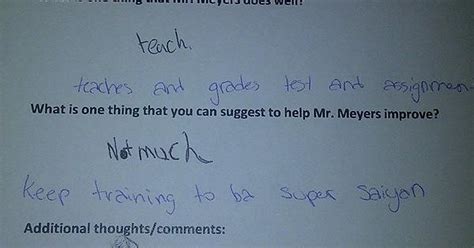 What is one thing that Mr. Meyers does well?
teach.
teaches and grades test and assignmen
What is one thing that you can suggest to help Mr. Meyers improve?
Not much
keep training to be super saiyan
Additional thoughts/comments: